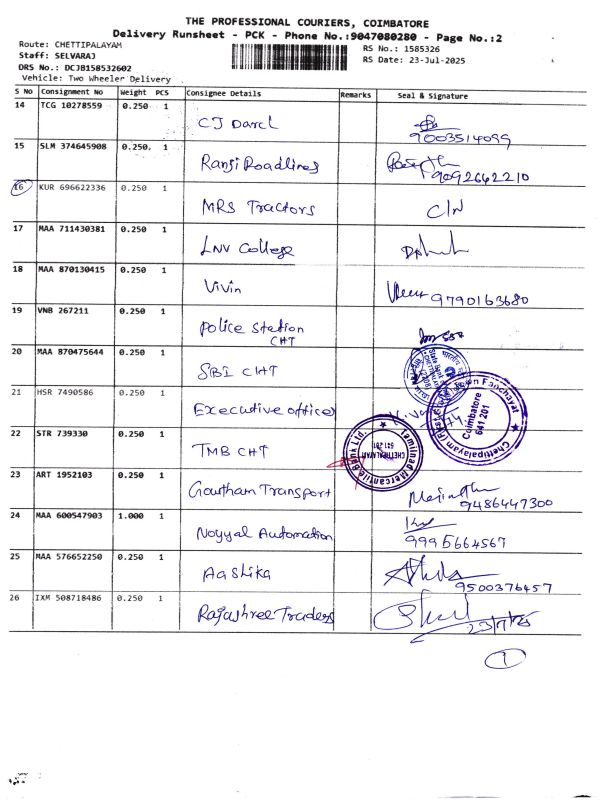 THE PROFESSIONAL COURIERS, COIMBATORE
Delivery Runsheet - PCK - Phone No.:9047080280 - Page No.:2
Route: CHETTIPALAYAM
Staff: SELVARAJ
DRS No.: DCJB158532602
Vehicle: Two Wheeler Delivery
RS No.: 1585326
RS Date: 23-Jul-2025
S No Consignment No Weight PCS Consignee Details Remarks Seal & Signature
14 TCG 10278559 0.250 1 CJ Darcl 9003514099
15 SLM 374645908 0.250 1 Ranji Roadlines 9092642210
16 KUR 696622336 0.250 1 MRS Tractors C/N
17 MAA 711430381 0.250 1 LNV College
18 MAA 870130415 0.250 1 Vivin 9790163680
19 VNB 267211 0.250 1 Police Station
CHT
20 MAA 870475644 0.250 1 SBI CHT
21 HSR 7490586 0.250 1 Executive officer
Chettipalayam
Coimbatore
641 201
22 STR 739330 0.250 1 TMB CHT
Tamilnad Mercantile Bank Ltd.
CHETTIPALAYAM
641 201
23 ART 1952103 0.250 1 Goutham Transport 9486447300
24 MAA 600547903 1.000 1 Noyyal Automation 9995664567
25 MAA 576652250 0.250 1 Aashika 9500376457
26 IXM 508718486 0.250 1 Rajashree Traders 23/7/25
1